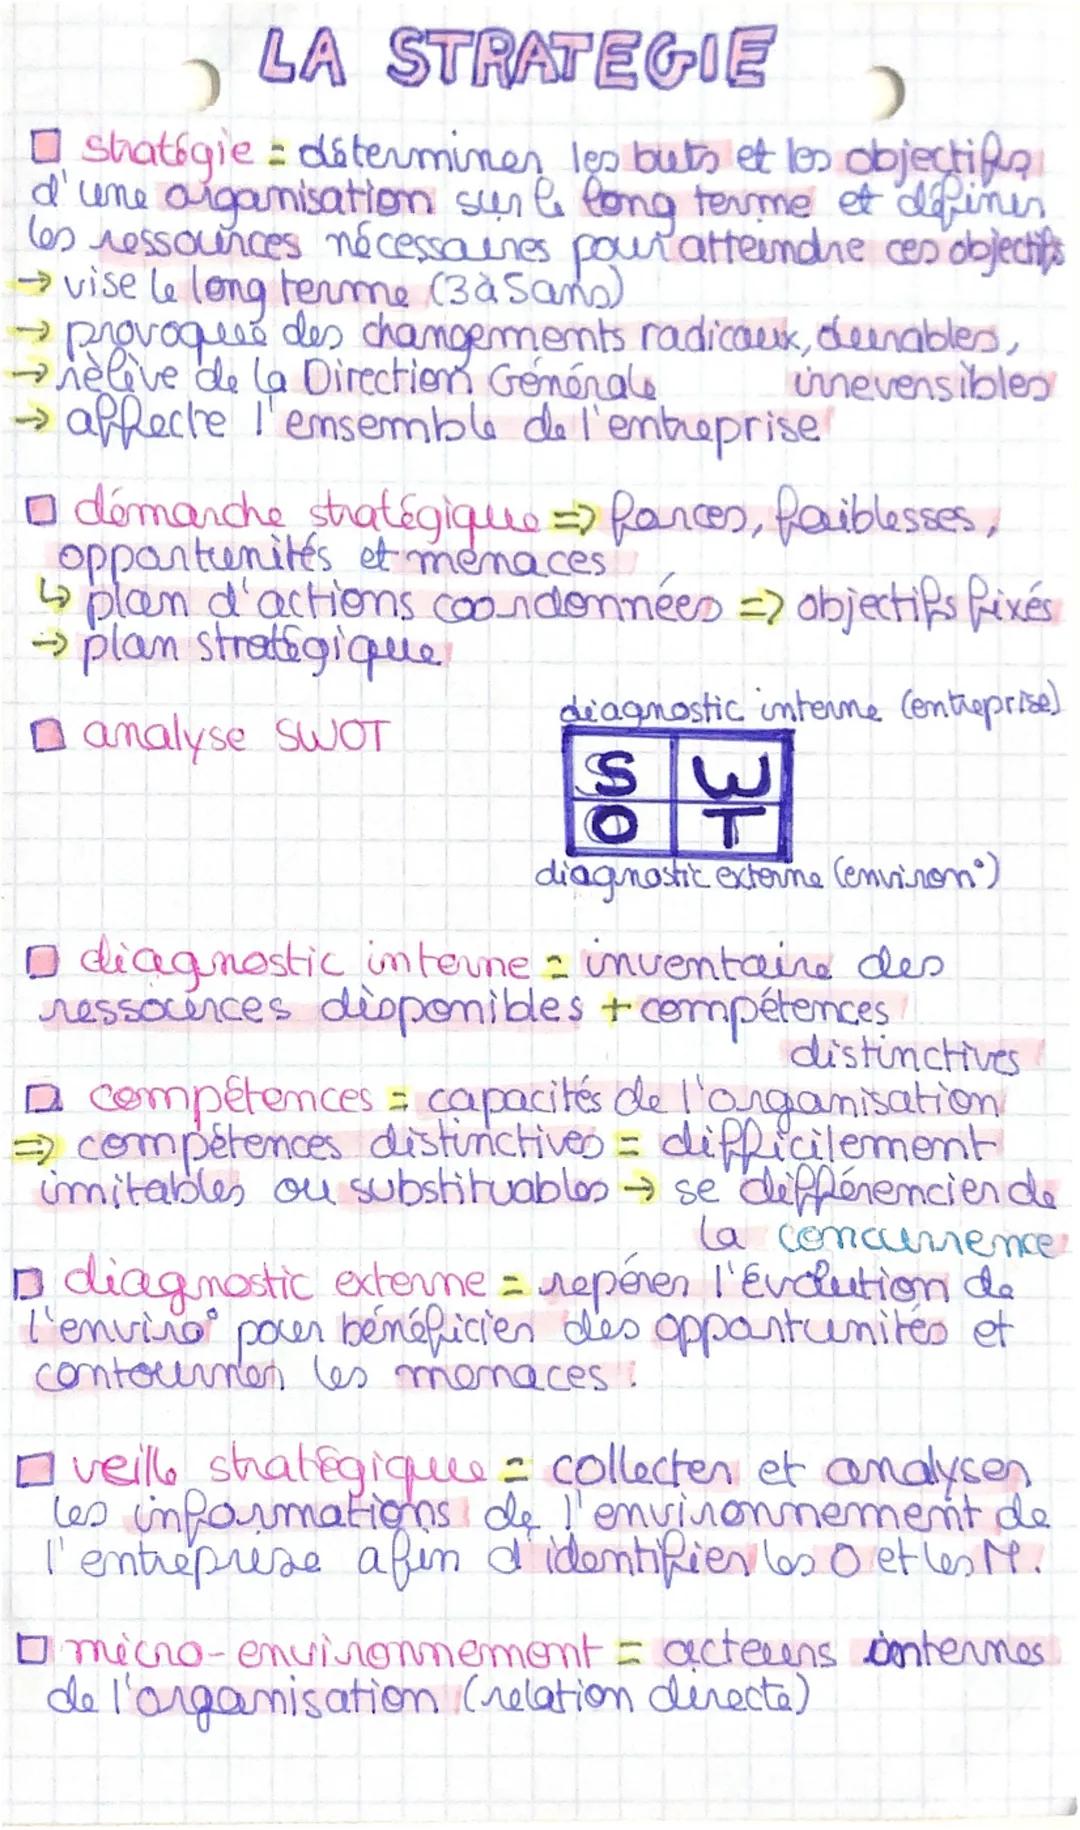 LA STRATEGIE
stratégie = déterminer les buts et les objectifs
d'une organisation sur le long terme et définir
les ressources nécessaires pour atteindre ces objectifs
→ vise le long terme (3 à 5 ans)
→ provoque des changements radicaux, durables,
irreversibles
→ rèlève de la Direction Générale
→ affecte l'ensemble de l'entreprise
démarche stratégique => forces, faiblesses,
opportunités et menaces
↳ plan d'actions coordonnées => objectifs fixés
→ plan stratégique
analyse SWOT
diagnostic interne (entreprise)
S W
O T
diagnostic externe (environ°)
diagnostic interne = inventaire des
ressources disponibles + compétences
distinctives
compétences = capacités de l'organisation
=> compétences distinctives = difficilement
imitables ou substituables → se différencier de
la concurrence
diagnostic externe = repérer l'évolution de
l'enviro° pour bénéficier des opportunités et
contourner les menaces.
veille stratégique = collecter et analyser
les informations de l'environnement de
l'entreprise afin d'identifier les O et les M.
micro-environnement = acteurs internes
de l'organisation (relation directe)